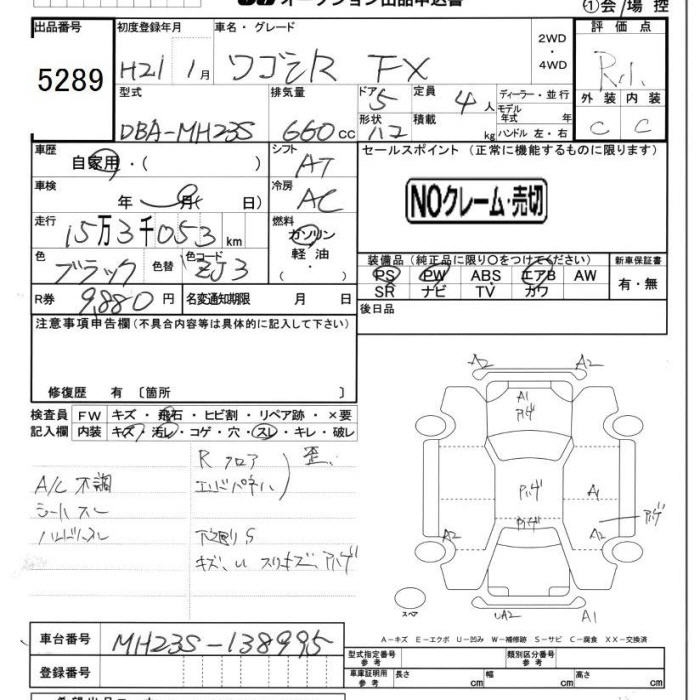 オークション出品申込書
①会/場 控
出品番号
5289
初度登録年月
H21 1月
車名・グレード
ワゴンR FX
2WD
・
4WD
評価点
R小
外装 内装
C C
型式
DBA-MH23S
排気量
660cc
ドア
5
形状
ハコ
定員
4人
積載
kg
ディーラー・並行
モデル年式 年
ハンドル 左・右
車歴
自家用・( )
シフト
AT
セールスポイント (正常に機能するものに限ります)
NOクレーム・売切
車検
年 月( 日)
冷房
AC
走行
15万3千053km
燃料
ガソリン
軽油
( ・ )
色
ブラック
色替
色コード
ZJ3
装備品 (純正品に限り○をつけてください)
PS PW ABS エアB AW
SR ナビ TV カワ
新車保証書
有・無
R券 9,880円
名変通知期限 月 日
後日品
注意事項申告欄 (不具合内容等は具体的に記入して下さい)
修復歴 有 〔箇所 〕
検査員記入欄
FW キズ・飛石・ヒビ割・リペア跡・×要
内装 キズ・汚レ・コゲ・穴・スレ・キレ・破レ
A/C 不調
シートスレ
ハンドルスレ
Rフロア
エンドパネル
歪
下廻りS
キズ、U スリキズ、
A2 A2
A1
A1
A2 A2
UA2 A1
スペア
A－キズ E－エクボ U－凹み W－補修跡 S－サビ C－腐食 XX－交換済
車台番号
MH23S-138995
登録番号
型式指定番号
参考
類別区分番号
参考
車庫証明用
参考
長さ cm 幅 cm 高さ cm